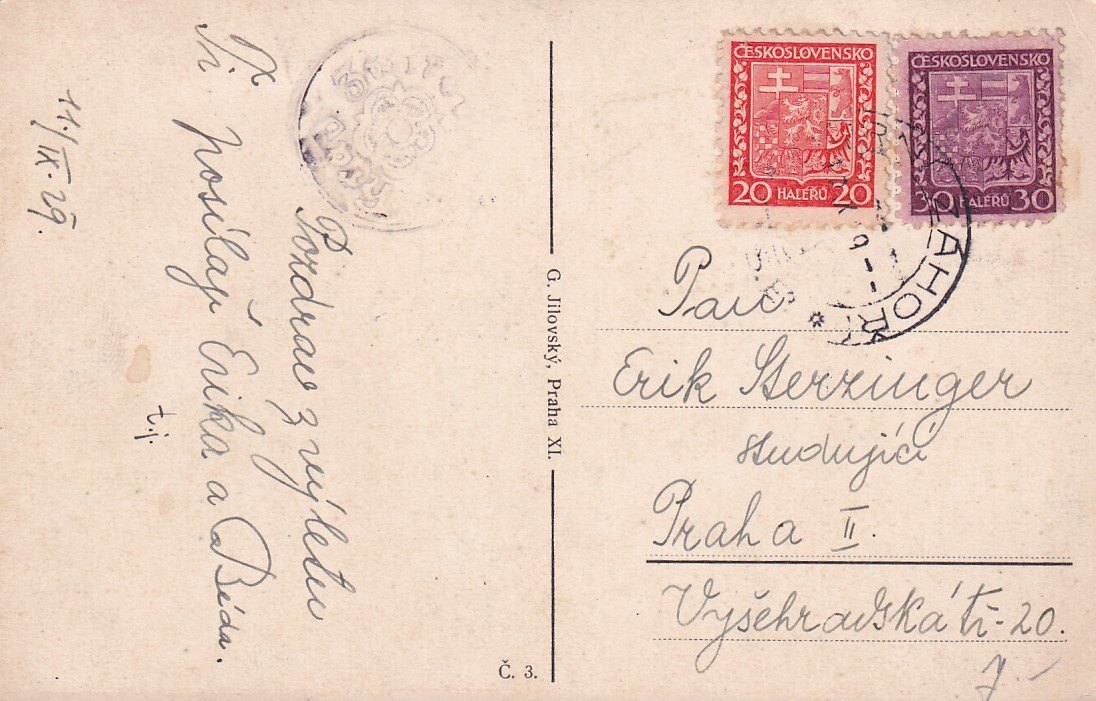 11./IX. 29.
Pozdrav z výletu
Ti posílají Erika a Béďa.
t.j.
G. Jilovský, Praha XI.
Č. 3.
ČESKOSLOVENSKO
20 HALÉŘŮ 20
ČESKOSLOVENSKO
30 HALÉŘŮ 30
ZÁHOŘ
Pan
Erik Sterzinger
studující
Praha II.
Vyšehradská tř. 20.
7.-